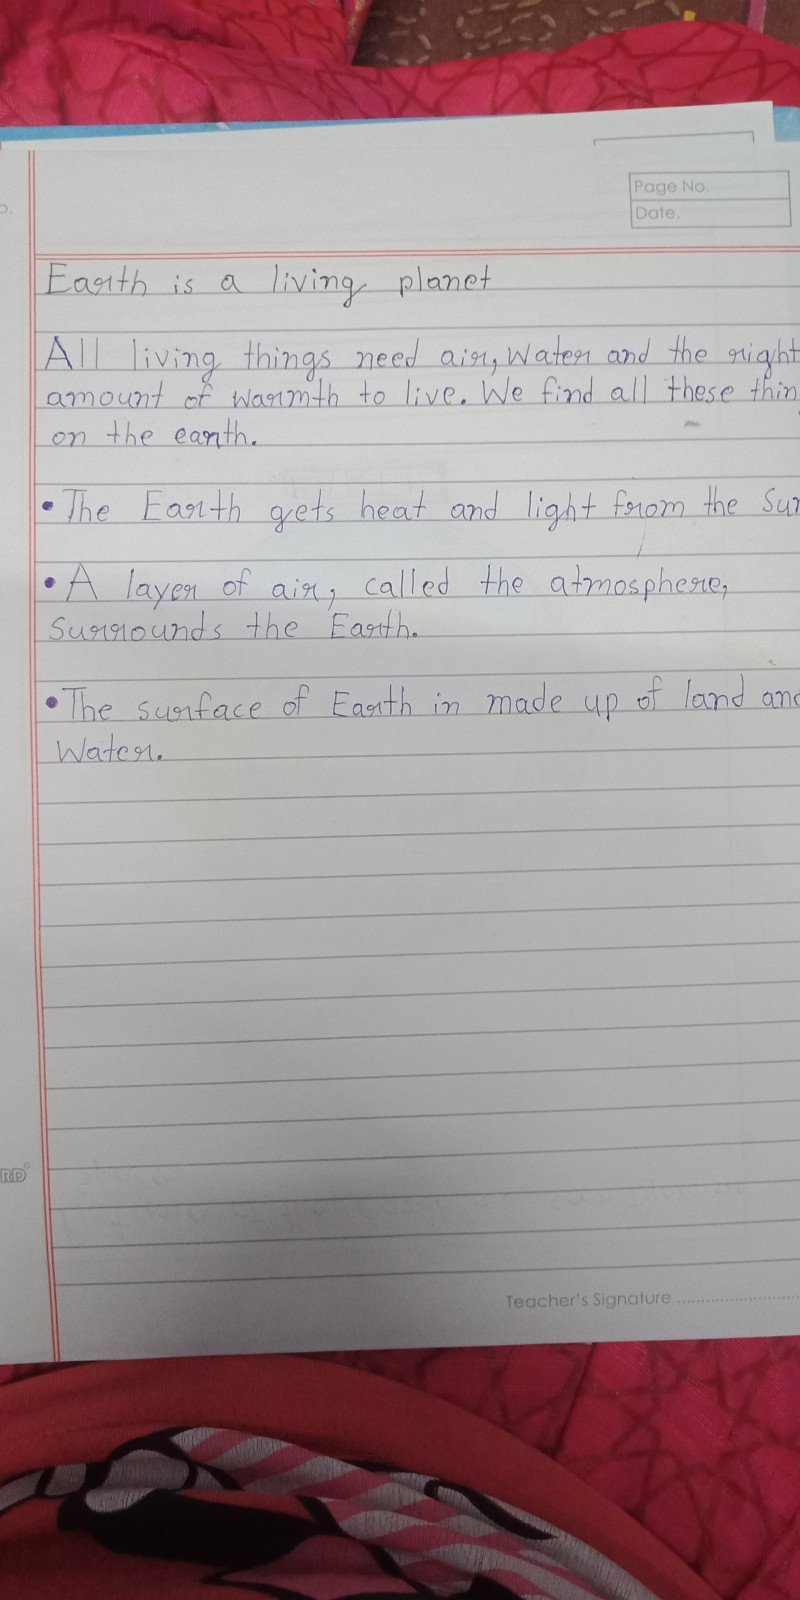 Page No.
Date.
Earth is a living planet
All living things need air, Water and the right
amount of warmth to live. We find all these thin
on the earth.
• The Earth gets heat and light from the Sun
• A layer of air, called the atmosphere,
Surrounds the Earth.
• The surface of Earth in made up of land and
Water.
RD
Teacher's Signature